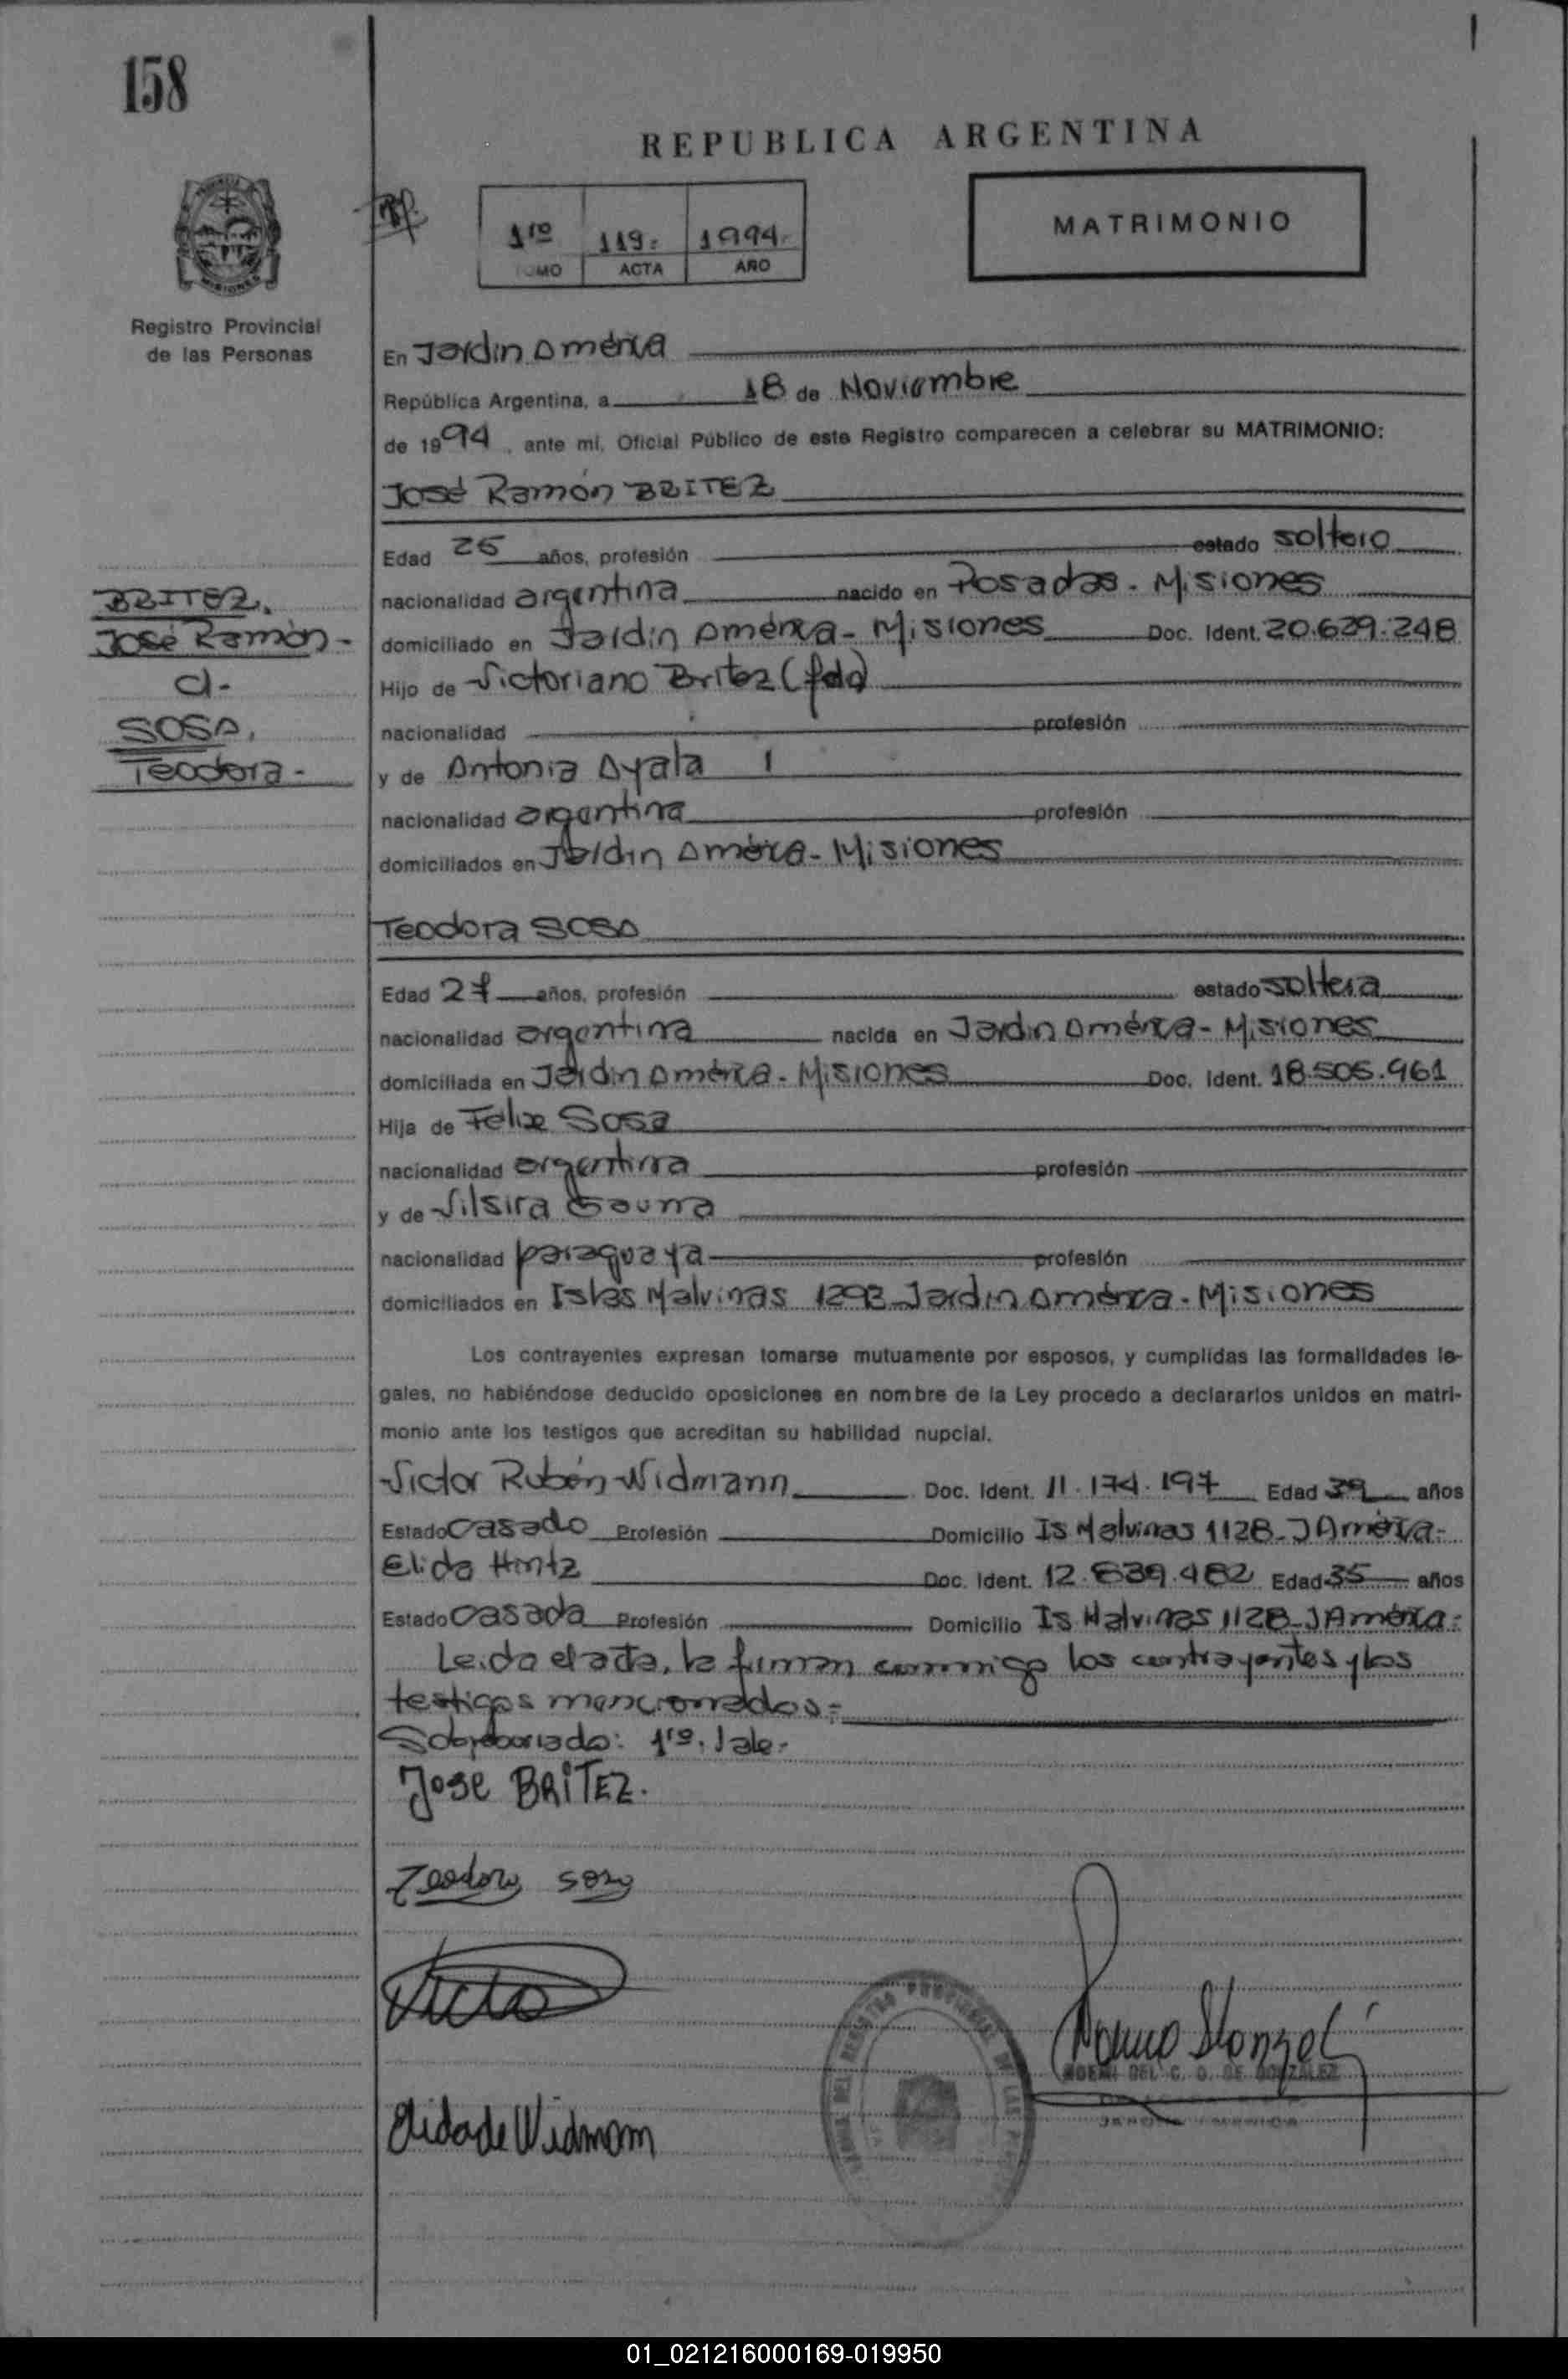 158
REPUBLICA ARGENTINA
1ro 119.- 1994.-
TOMO ACTA AÑO
MATRIMONIO
Registro Provincial
de las Personas
En Jardín América
República Argentina, a 18 de Noviembre
de 1994, ante mí, Oficial Público de este Registro comparecen a celebrar su MATRIMONIO:
José Ramón BRITEZ
Edad 25 años, profesión estado soltero
nacionalidad argentina nacido en Posadas - Misiones
domiciliado en Jardín América - Misiones Doc. Ident. 20.629.248
Hijo de Victoriano Britez (fdo)
nacionalidad profesión
y de Antonia Ayala
nacionalidad argentina profesión
domiciliados en Jardín América - Misiones
BRITEZ,
José Ramón -
c/-
SOSA,
Teodora -
Teodora SOSA
Edad 27 años, profesión estado soltera
nacionalidad argentina nacida en Jardín América - Misiones
domiciliada en Jardín América - Misiones Doc. Ident. 18.505.961
Hija de Felix Sosa
nacionalidad argentina profesión
y de Vilsira Gauna
nacionalidad paraguaya profesión
domiciliados en Islas Malvinas 1293 Jardín América - Misiones
Los contrayentes expresan tomarse mutuamente por esposos, y cumplidas las formalidades le-
gales, no habiéndose deducido oposiciones en nombre de la Ley procedo a declararlos unidos en matri-
monio ante los testigos que acreditan su habilidad nupcial.
Victor Rubén Widmann Doc. Ident. 11.174.197 Edad 39 años
Estado casado Profesión Domicilio Is Malvinas 1128 - J América -
Elida Hintz Doc. Ident. 12.839.482 Edad 35 años
Estado casada Profesión Domicilio Is Malvinas 1128 - J América -
Leida el acta, la firman conmigo los contrayentes y los
testigos mencionados.-
Sobreborrado: 1ro. Vale.-
JOSE BRITEZ.
Teodora Sosa
Victor
Elida de Widmann
NOEMI DEL C. O. DE GONZALEZ
JARDIN AMERICA
01_021216000169-019950